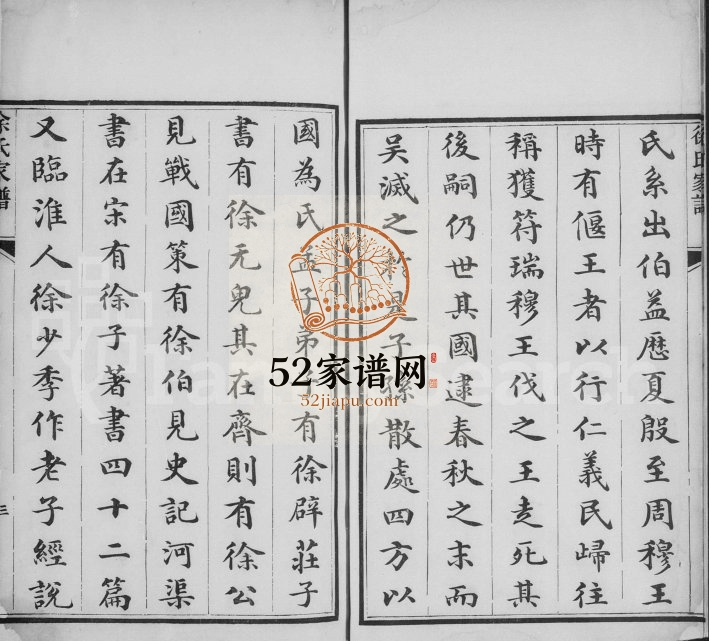 氏系出伯益歷夏殷至周穆王
時有偃王者以行仁義民歸往
稱獲符瑞穆王伐之王走死其
後嗣仍世其國逮春秋之末而
吳滅之於是子孫散處四方以
國為氏孟子弟子有徐辟莊子
書有徐无鬼其在齊則有徐公
見戰國策有徐伯見史記河渠
書在宋有徐子著書四十二篇
又臨淮人徐少季作老子經說
徐氏家譜
三
52家谱网
52jiapu.com